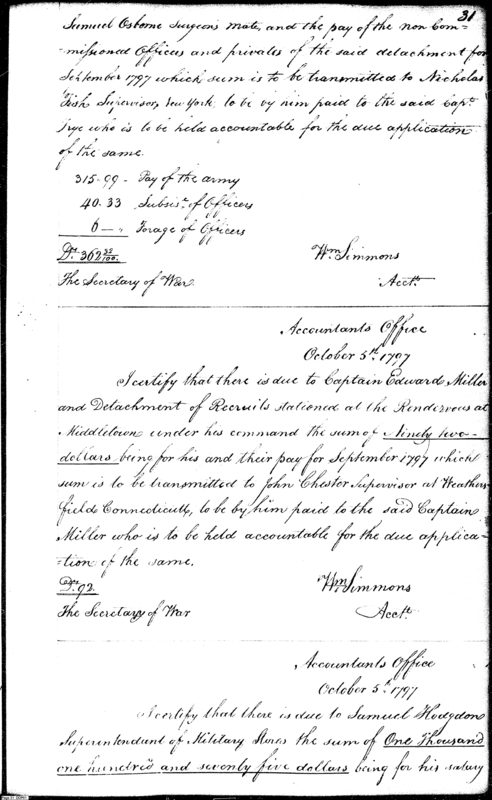 31
Samuel Osborne Surgeons mate, and the pay of the non Com-
-missioned Officers and privates of the said detachment for
September 1797 which sum is to be transmitted to Nicholas
Fish Supervisor, New York, to be by him paid to the said Capt.
Frye who is to be held accountable for the due application
of the same.
315.99 - Pay of the army
40.33 Subsist. of Officers
6 - " Forage of Officers
Drs. 362 32/100.
Wm. Simmons
The Secretary of War.
Acct.
Accountants Office
October 5th. 1797
I certify that there is due to Captain Edward Miller
and Detachment of Recruits stationed at the Rendezvous at
Middletown under his command the sum of Ninety two
dollars being for his and their pay for September 1797 which
sum is to be transmitted to John Chester Supervisor at Weathers-
-field Connecticutt, to be by him paid to the said Captain
Miller who is to be held accountable for the due applica-
-tion of the same.
Drs. 92.
Wm. Simmons
The Secretary of War
Acct.
Accountants Office
October 5th. 1797
I certify that there is due to Samuel Hodgdon
Superintendant of Military Stores the sum of One Thousand
one hundred and seventy five dollars being for his salary